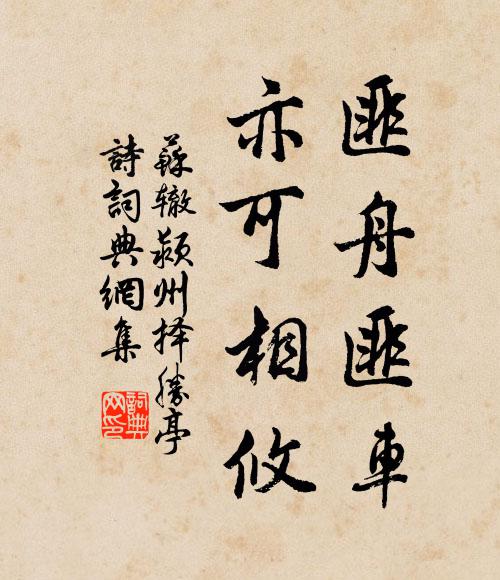 匪舟匪車
亦可相攸
蘇辙颍州择勝亭
詩詞典網集
詞典
网印